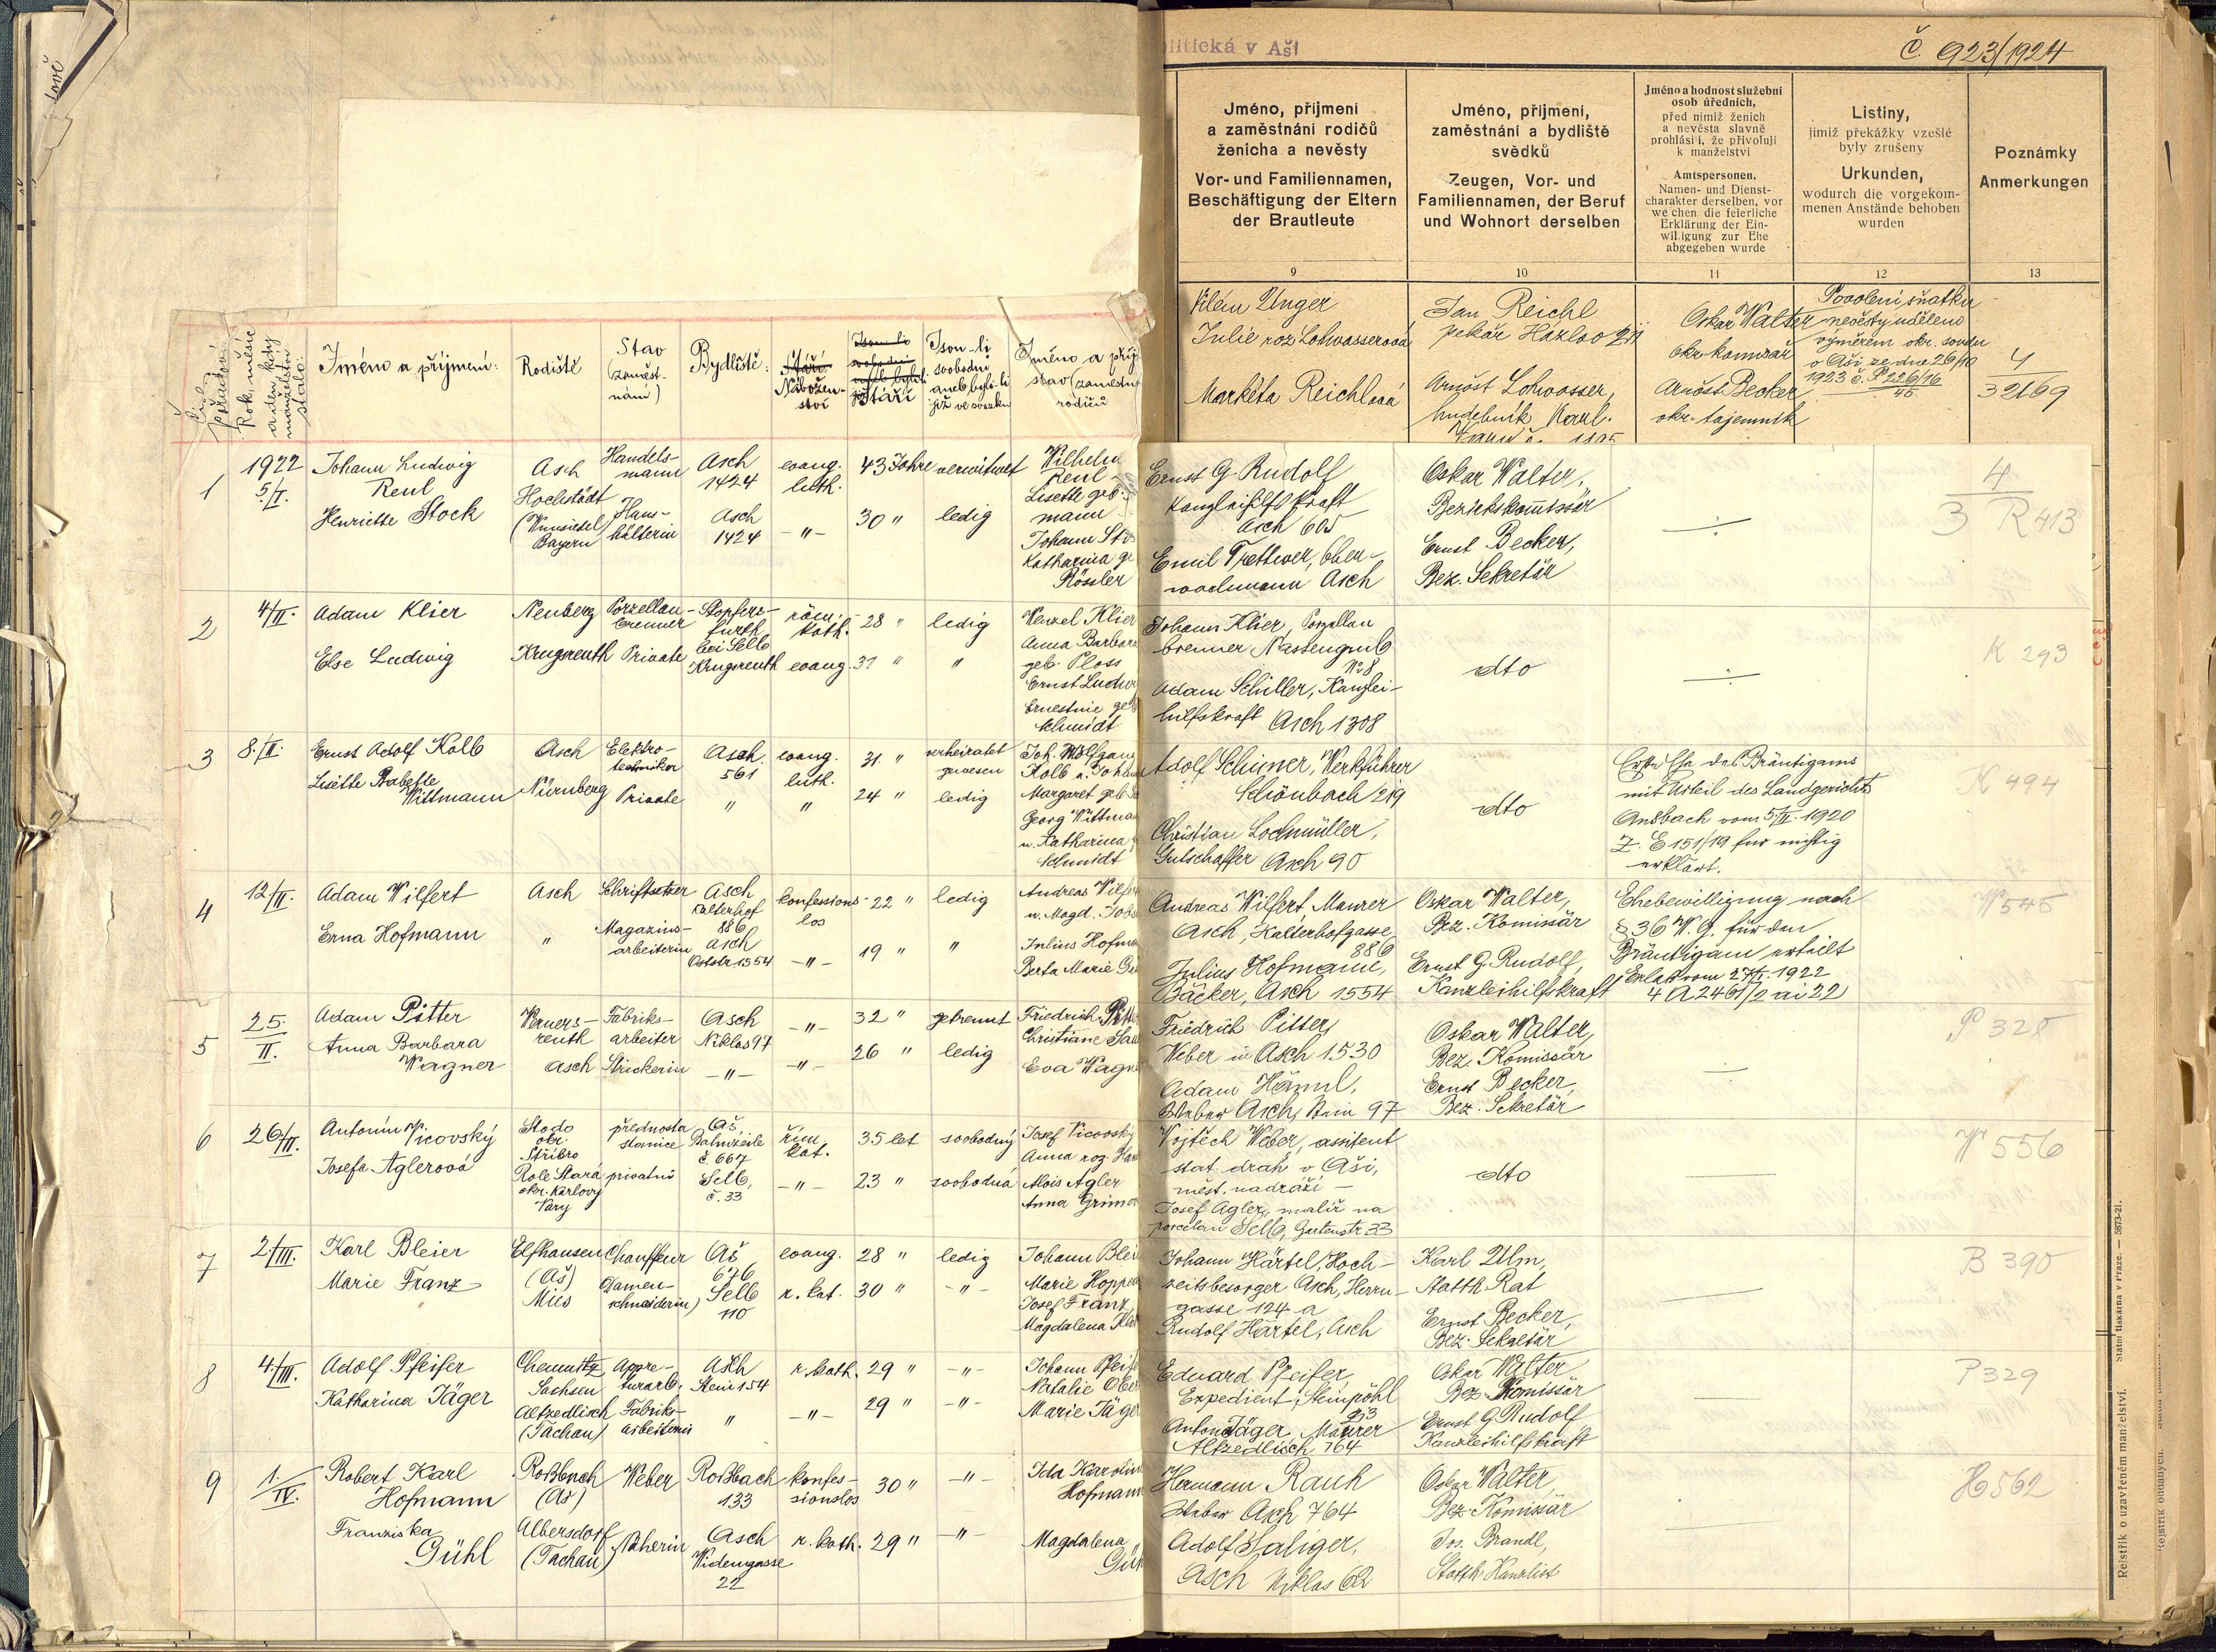 litická v Aši
č. 923/1924
Jméno, příjmení
a zaměstnání rodičů
ženicha a nevěsty
Vor- und Familiennamen,
Beschäftigung der Eltern
der Brautleute
9
Jméno, příjmení,
zaměstnání a bydliště
svědků
Zeugen, Vor- und
Familiennamen, der Beruf
und Wohnort derselben
10
Jméno a hodnost služební
osob úředních,
před nimiž ženich
a nevěsta slavně
prohlásili, že přivolují
k manželství
Amtspersonen,
Namen- und Dienst-
charakter derselben, vor
welchen die feierliche
Erklärung der Ein-
willigung zur Ehe
abgegeben wurde
11
Listiny,
jimiž překážky vzešlé
byly zrušeny
Urkunden,
wodurch die vorgekom-
menen Anstände behoben
wurden
12
Poznámky
Anmerkungen
13
Vilém Unger
Julie roz. Lohwasserová
Markéta Reichlová
Jan Reichl
pekař Hazlov 211
Arnošt Lohwasser,
hudebník, Karl.
Oskar Walter
okr. komisař
Arnošt Becker
okr. tajemník
Povolení sňatku
nevěsty uděleno
výměrem okr. soudu
v Aši ze dne 26/10
1923 č. P 226/16
45
4
32169
Číslo
Pořadové
Rok, měsíc
a den, kdy
manželství
stalo:
Jméno a příjmení:
Rodiště
Stav
(zaměst-
nání)
Bydliště:
Stáří
Nábožen-
ství
Jsou-li
svobodni
Stáří
Jsou-li
svobodni
aneb byli-li
již ve svazku
Jméno a příj
stav (zaměstn
rodičů
1
1922
5/I.
Johann Ludwig
Reul
Henriette Stock
Asch
Hochstädt
(Wunsiedel)
Bayern
Handels-
mann
Haus-
hälterin
Asch
1424
Asch
1424
evang.
luth.
-"-
43 Jahre
30 "
verwitwet
ledig
Wilhelm
Reul
Lisette geb.
mann
Johann Sto
Katharina ge
Rössler
Ernst G. Rudolf
Kanzleihilfskraft
Asch 605
Emil Trettwer, Ober-
wachmann Asch
Oskar Walter,
Bezirkskommissär
Ernst Becker,
Bez. Sekretär
4
3 R 413
2
4/II.
Adam Klier
Else Ludwig
Neuberg
Krugsreuth
Porzellan-
brenner
Private
Stopfers-
furth
bei Selb
Krugsreuth
röm.
kath.
evang.
28 "
31 "
ledig
"
Wenzel Klier
Anna Barbara
geb. Ploss
Ernst Ludwi
Ernestine geb
Schmidt
Johann Klier, Porzellan
brenner Nassengrub
No 8
Adam Schiller, Kanzlei-
hilfskraft Asch 1308
dto
K 293
3
8./II.
Ernst Adolf Kolb
Lisette Babette
Wittmann
Asch
Nürnberg
Elektro-
techniker
Private
Asch
561
"
evang.
luth.
"
31 "
24 "
verheiratet
gewesen
ledig
Joh. Wolfgang
Kolb u. Johan
Margaret geb.
Georg Wittma
u. Katharina
Schmidt
Adolf Schirner, Werkführer
Schönbach 219
Christian Lochmüller,
Gutschaffer Asch 90
dto
Erste Ehe des Bräutigams
mit Urteil des Landgerichts
Ansbach vom 5/II. 1920
Z. E 151/19 für nichtig
erklärt.
K 494
4
12/II.
Adam Wilfert
Erna Hofmann
Asch
"
Schriftsetzer
Magazins-
arbeiterin
Asch
Kalterhof
886
Asch
Oststr. 1554
konfessions-
los
-"-
22 "
19 "
ledig
"
Andreas Wilfe
u. Magd. Job
Julius Hofma
Berta Marie
Andreas Wilfert, Maurer
Asch, Kalterhofgasse
886
Julius Hofmann,
Bäcker, Asch 1554
Oskar Walter,
Bez. Komissär
Ernst G. Rudolf,
Kanzleihilfskraft
Ehebewilligung nach
§ 36 W. G. für den
Bräutigam erteilt
Erlaß vom 27/I. 1922
4 A 2461/2 ai 22
W 545
5
25.
II.
Adam Pitter
Anna Barbara
Wagner
Werners-
reuth
Asch
Fabriks-
arbeiter
Strickerin
Asch
Niklas 97
-"-
-"-
-"-
32 "
26 "
getrennt
ledig
Friedrich Pitt
Christiane
Eva Wagn
Friedrich Pitter,
Weber in Asch 1530
Adam Hörnel,
Weber Asch, Stein 97
Oskar Walter,
Bez. Komissär
Ernst Becker,
Bez. Sekretär
P 328
6
26/II.
Antonín Vicovský
Josefa Aglerová
Stodo
okr.
Stříbro
Role Stará
okr. Karlovy
Vary
přednosta
stanice
privatní
Aš
Bahnzeile
č. 667
Selb,
č. 33
řím.
kat.
-"-
35 let
23 "
svobodný
svobodná
Josef Vicovský
Anna roz.
Alois Agler
Anna Grimm
Vojtěch Weber, assistent
stát. drah v Aši,
měst. nádraží -
Josef Agler, malíř na
porcelan Selb, Gartenstr. 33
dto
W 556
7
2/III.
Karl Bleier
Marie Franz
Elfhausen
(Aš)
Mies
Chauffeur
Damen-
schneiderin
Aš
676
Selb
110
evang.
r. kat.
28 "
30 "
ledig
-"-
Johann Blei
Marie Hoppe
Josef Franz
Magdalena
Johann Härtel, Hoch-
zeitsbesorger Asch, Herrn-
gasse 124 a
Rudolf Härtel, Asch
Karl Ulm,
Statth. Rat
Ernst Becker,
Bez. Sekretär
B 390
8
4/III.
Adolf Pfeifer
Katharina Jäger
Chemnitz
Sachsen
Altzedlisch
(Tachau)
Appre-
turarb.
Fabriks-
arbeiterin
Asch
Stein 154
"
r. kath.
-"-
29 "
29 "
-"-
-"-
Johann Pfeif
Natalie Ober
Marie Jäge
Eduard Pfeifer,
Expedient, Steinpöhl
213
Anton Jäger, Maurer
Altzedlisch 164
Oskar Walter
Bez. Komissär
Ernst G. Rudolf
Kanzleihilfskraft
P 329
9
1.
IV.
Robert Karl
Hofmann
Franziska
Gühl
Roßbach
(Aš)
Albersdorf
(Tachau)
Weber
Näherin
Roßbach
133
Asch
Widemgasse
22
konfes-
sionslos
r. kath.
30 "
29 "
-"-
-"-
Ida Karolin
Hofmann
Magdalena
Güh
Hermann Rauh
Weber Asch 764
Adolf Saliger,
Asch Niklas 62
Oskar Walter,
Bez. Komissär
Jos. Brandl,
Statth. Kanzlist
H 562
Rejstřík o uzavřeném manželství. Státní tiskárna v Praze. — 5873-21.